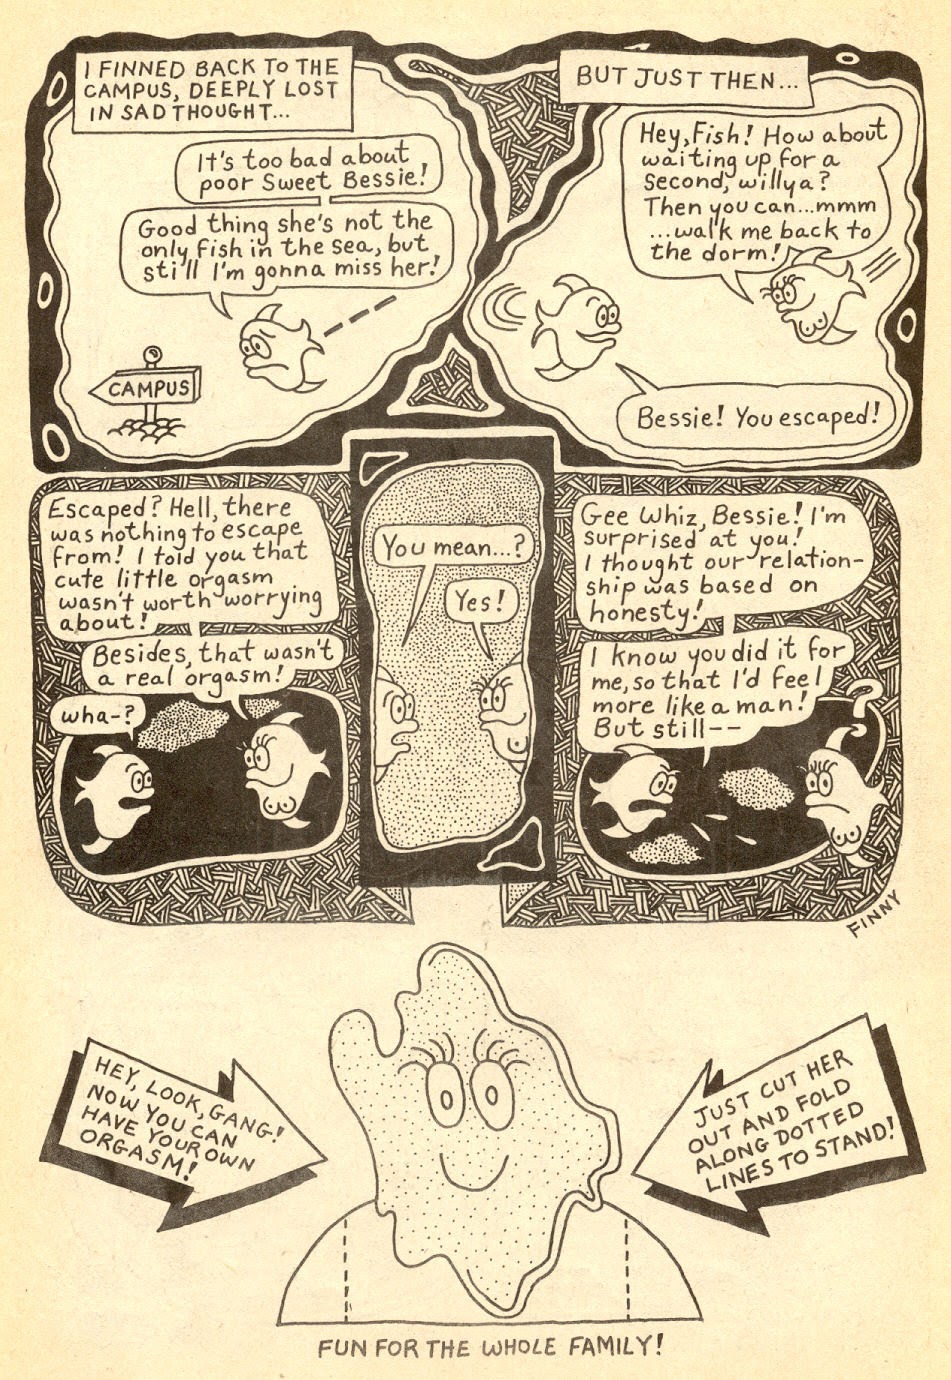 I FINNED BACK TO THE
CAMPUS, DEEPLY LOST
IN SAD THOUGHT...
It's too bad about
poor Sweet Bessie!
Good thing she's not the
only fish in the sea, but
still I'm gonna miss her!
CAMPUS
BUT JUST THEN...
Hey, Fish! How about
waiting up for a
second, willya?
Then you can...mmm
...walk me back to
the dorm!
Bessie! You escaped!
Escaped? Hell, there
was nothing to escape
from! I told you that
cute little orgasm
wasn't worth worrying
about!
Besides, that wasn't
a real orgasm!
wha-?
You mean...?
Yes!
Gee Whiz, Bessie! I'm
surprised at you!
I thought our relation-
ship was based on
honesty!
I know you did it for
me, so that I'd feel
more like a man!
But still--
?
FINNY
HEY, LOOK, GANG!
NOW YOU CAN
HAVE YOUR OWN
ORGASM!
JUST CUT HER
OUT AND FOLD
ALONG DOTTED
LINES TO STAND!
FUN FOR THE WHOLE FAMILY!